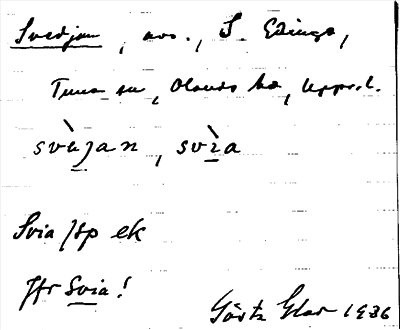 Svedjan, avs., S. Edinge,
Tuna sn, Olands hd, Upps. l.
svèjan, svìa
Svia /sp ek
Jfr Svia!
Gösta Glas 1936